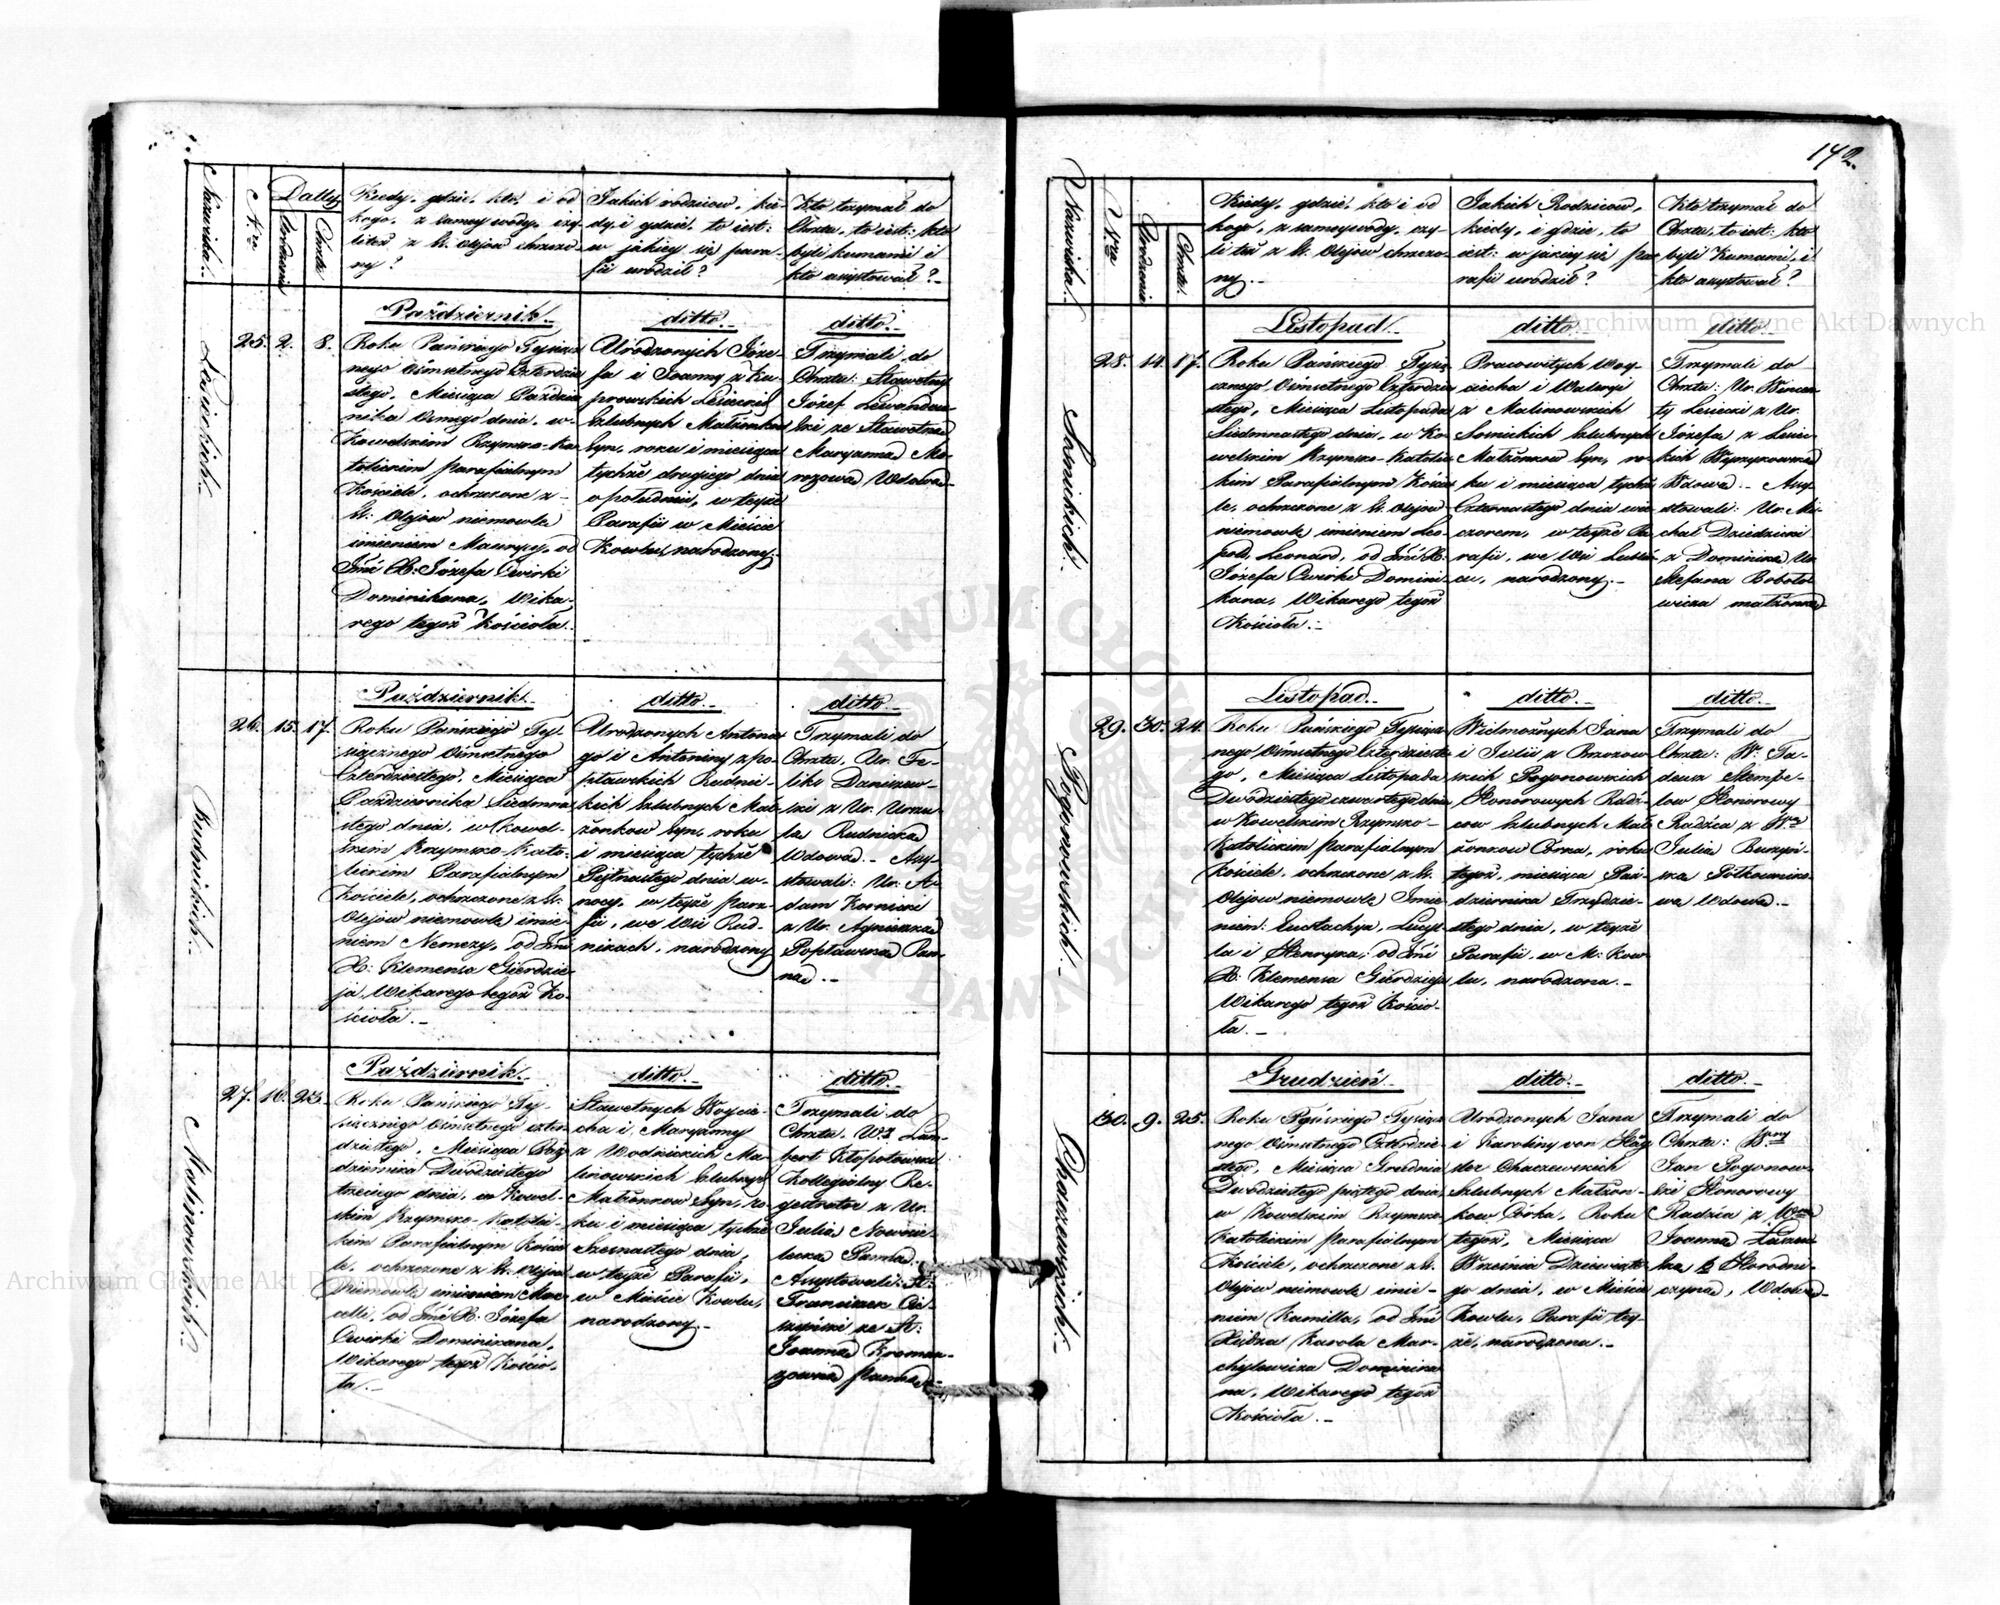 142.
Nazwiska.
N.ro
Datty
Urodzenia
Chrztu
Kiedy, gdzie, kto, i od
kogo, z samey wody, czy-
liteż z Ss. Olejów chrzczo-
ny?
Jakich rodziców, kie-
dy, i gdzie, to iest:
w jakiey się para-
fii urodził?
Kto trzymał do
Chrztu, to iest: kto
byli kumami i
kto assystował?
Lesieckich.
25. 2. 8.
Październik.
Roku Pańskiego Tysiącz
nego Ośmsetnego Czterdzie
stego, Miesiąca Paździer
nika Osmego dnia, w
Kowelskim Rzymsko-Ka
tolickim parafialnym
Kościele, ochrzczone z
Ss: Olejow niemowle
imieniem Maurycy, od
Jmć X: Józefa Cwirki
Dominikana, Wika-
rego tegoż Kościoła.
ditto.
Urodzonych Józe-
fa i Joanny z Ku-
prowskich Lesieckich
Szlubnych Małżonkow
Syn, roku i miesiąca
tychże drugiego dnia
o południu, w teyże
Parafii w Mieście
Kowlu, narodzony.
ditto.
Trzymali do
Chrztu: Sławetny
Józef Lewandow-
ski ze Sławetną
Maryanną Mo-
rozową Wdową
Rudnickich.
26. 15. 17.
Październik.
Roku Pańskiego Ty-
siącznego Ośmsetnego
Czterdziestego, Miesiąca
Października Siedmna
stego dnia, w Kowel-
skim Rzymsko-Kato-
lickim Parafialnym
Kościele, ochrzczone z Ss:
Olejow niemowle imie-
niem Nemezy, od Jmć
X: Klemensa Gierdzie-
ja, Wikarego tegoż Ko-
ścioła.
ditto.
Urodzonych Antonie
go i Antoniny z Po-
pławskich Rudnic-
kich Szlubnych Mał-
żonkow Syn, roku
i miesiąca tychże
Piętnastego dnia w
nocy, w teyże para-
fii, we Wsi Rud-
nikach, narodzony
ditto.
Trzymali do
Chrztu, Ur. Fe-
liks Daniszew-
ski z Ur. Urszu-
lą Rudnicką
Wdową. Assy-
stowali: Ur. A-
dam Kornicki
z Ur. Agnieszką
Popławską Pan-
ną.
Malinowskich.
27. 16. 23.
Październik.
Roku Pańskiego Ty-
siącznego Ośmsetnego czter
dziestego, Miesiąca Paź
dziernika Dwudziestego
trzeciego dnia, w Kowel-
skim Rzymsko-Katolic-
kim Parafialnym Koście
le, ochrzczone z Ss. Olejow
Niemowle imieniem Mar-
celli, od Jmć X: Józefa
Cwirki Dominikana,
Wikarego tegoż Kościo-
ła.
ditto.
Sławetnych Woycie-
cha i Maryanny
z Wodnickich Ma-
linowskich Szlubnych
Małżonkow Syn, ro-
ku i miesiąca tychże
Szesnastego dnia,
w teyże Parafii,
w Mieście Kowlu,
narodzony.
ditto.
Trzymali do
Chrztu, W. Lam-
bert Kłopotowski
Kollegialny Re-
gestrator z Ur.
Julią Nowosie-
lecką Panną.
Assystowali: Sł:
Franciszek Cie-
szyński ze Sł:
Joanną Kroman-
zowną Panną
Nazwiska.
N.ro
Urodzenia
Chrztu.
Kiedy, gdzie, kto i od
kogo, z samey wody, czy-
li też z Ss. Olejów chrzczo-
ny.
Jakich Rodziców,
kiedy, i gdzie, to
iest: w jakiey się pa
rafii urodził?
Kto trzymał do
Chrztu, to iest: kto
byli Kumami, i
kto assystował?
Sosnickich.
28. 14. 17.
Listopad.
Roku Pańskiego Tysią
cznego Ośmsetnego Czterdzie
stego, Miesiąca Listopada
Siedmnastego dnia, w Ko
welskim Rzymsko-Katolic
kim Parafialnym Koście
le, ochrzczone z Ss. Olejow
niemowle imieniem Leo
pold, Leonard, od Jmć X:
Józefa Cwirki Domini-
kana, Wikarego tegoż
Kościoła.
ditto.
Pracowitych Woy-
ciecha i Waleryi
z Malinowskich
Sosnickich Szlubnych
Małżonkow Syn, ro-
ku i miesiąca tychże
Czternastego dnia wie
czorem, w teyże Pa
rafii, we Wsi Lubli
cu, narodzony.
ditto.
Trzymali do
Chrztu: Ur. Wincen
ty Lesiecki z Ur.
Józefą z Lesiec-
kich Wyrzykowską
Wdową. Assy-
stowali: Ur. Mi-
chał Dziedzicki
z Dominiką Ur.
Stefana Bobole-
wicza małżonką
Pogonowskich.
29. 30. 24.
Listopad.
Roku Pańskiego Tysiącz
nego Ośmsetnego Czterdzieste
go, Miesiąca Listopada
Dwudziestego czwartego dnia
w Kowelskim Rzymsko-
Katolickim parafialnym
Kościele, ochrzczone z Ss.
Olejow niemowle Imie
niem: Eustachya, Lucyl
la i Henryka, od Jmć
X: Klemensa Gierdzieja
Wikarego tegoż Kościo-
ła.
ditto.
Wielmożnych Jana
i Julii z Brzozow
skich Pogonowskich
Honorowych Radź-
cow Szlubnych Mał
żonkow Córka, roku
tegoż, miesiąca Paź
dziernika Trzydzie-
stego dnia, w teyże
Parafii, w M: Kow
lu, narodzona.
ditto.
Trzymali do
Chrztu: W. Ta-
deusz Stempe-
low Honorowy
Radźca z W.ną
Julią Buzyń-
ską Półkowniko-
wą Wdową.
Chaczewskich.
30. 9. 25.
Grudzień
Roku Pańskiego Tysiącz
nego Ośmsetnego Czterdzie-
stego, Miesiąca Grudnia
Dwudziestego piątego dnia,
w Kowelskim Rzymsko
Katolickim parafialnym
Kościele, ochrzczone z Ss.
Olejow niemowle imie-
niem Kamilla, od Jmć
Xiędza Karola Mar-
chylewicza Dominika
na, Wikarego tegoż
Kościoła.
ditto.
Urodzonych Jana
i Karoliny von Hög
der Chaczewskich
Szlubnych Małżon-
kow Córka, Roku
tegoż, Miesiąca
Września Dziewiąte
go dnia, w Mieście
Kowlu, Parafii tey-
że, narodzona.
ditto.
Trzymali do
Chrztu: W.ny
Jan Pogonow-
ski Honorowy
Radźca z W.ną
Joanną
Horodni-
czyną, Wdową
Archiwum Główne Akt Dawnych
Archiwum Główne Akt Dawnych
ARCHIWUM GŁÓWNE AKT DAWNYCH